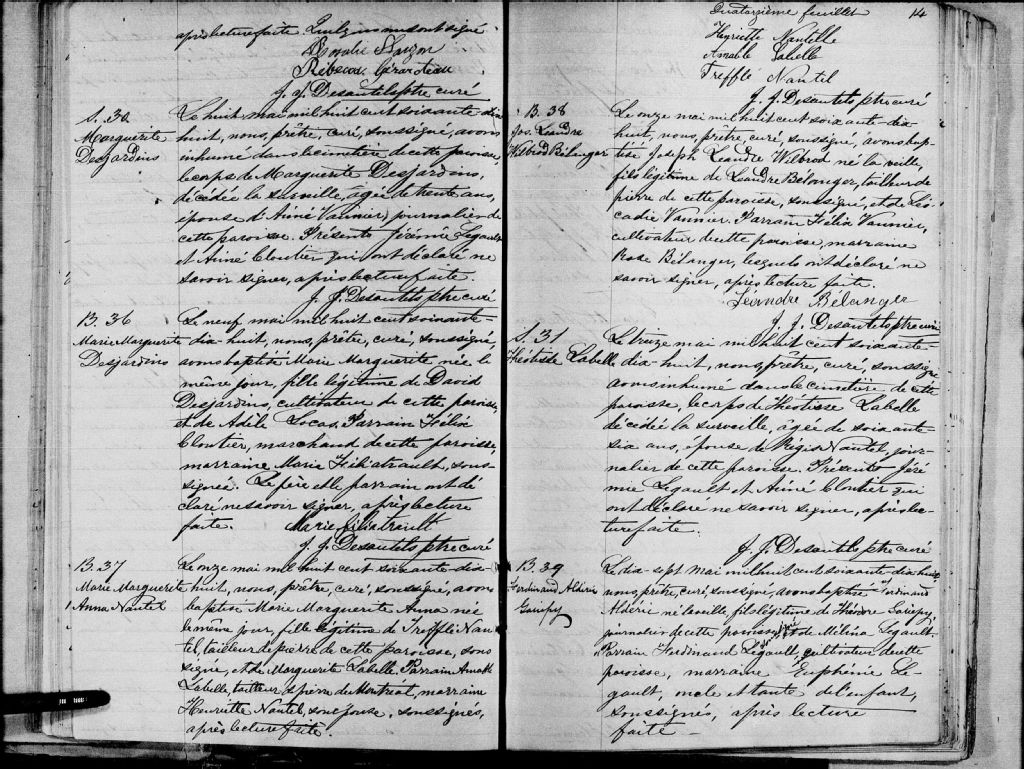 après lecture faite. Lesquels nous ont signé
Rosalie Lauzon
Rébecca Girardeau
J. J. Desautels ptre curé
S. 30
Marguerite
Desjardins
Le huit mai mil huit cent soixante-dix
huit, nous, prêtre, curé, soussigné, avons
inhumé dans le cimetière de cette paroisse,
le corps de Marguerite Desjardins,
décédée la surveille, âgée de trente ans,
épouse d'Aimé Vannier, journalier de
cette paroisse. Présents Jérémie Legault
et Aimé Cloutier qui ont déclaré ne
savoir signer, après lecture faite.
J. J. Desautels ptre curé
B. 36
Marie Marguerite
Desjardins
Le neuf mai mil huit cent soixante-
dix-huit, nous, prêtre, curé, soussigné,
avons baptisé Marie Marguerite née le
même jour, fille légitime de David
Desjardins, cultivateur de cette paroisse,
et de Adèle Locas. Parrain Félix
Cloutier, marchand de cette paroisse,
marraine Marie Filiatrault, sous-
signée. Le père et le parrain ont dé
claré ne savoir signer, après lecture
faite.
Marie Filiatrault
J. J. Desautels ptre curé
B. 37
Marie Marguerite
Anna Nantel
Le onze mai mil huit cent soixante-dix-
huit, nous, prêtre, curé, soussigné, avons
baptisé Marie Marguerite Anna née
le même jour, fille légitime de Trefflé Nan
tel, tailleur de pierre de cette paroisse, sous
signé, et de Marguerite Labelle. Parrain Amable
Labelle, tailleur de pierre de Montréal, marraine
Henriette Nantel, son épouse, soussignés,
après lecture faite.
Quatorzième feuillet 14
Henriette Nantelle
Amable Labelle
Trefflé Nantel
J. J. Desautels ptre curé
B. 38
Jos. Léandre
Wilbrod Bélanger
Le onze mai mil huit cent soixante-dix-
huit, nous, prêtre, curé, soussigné, avons bap-
tisé Joseph Léandre Wilbrod né la veille,
fils légitime de Léandre Bélanger, tailleur de
pierre de cette paroisse, soussigné, et de Léo-
cadie Vannier. Parrain Félix Vannier,
cultivateur de cette paroisse, marraine
Rose Bélanger, lesquels ont déclaré ne
savoir signer, après lecture faite.
Léandre Bélanger
J. J. Desautels ptre curé
S. 31
Théotiste Labelle
Le treize mai mil huit cent soixante-
dix-huit, nous, prêtre, curé, soussigné
avons inhumé dans le cimetière de cette
paroisse, le corps de Théotisse Labelle
décédée la surveille, âgée de soixante-
six ans, épouse de Régis Nantel, jour-
nalier de cette paroisse. Présents Jéré
mie Legault et Aimé Cloutier qui
ont déclaré ne savoir signer, après lec-
ture faite.
J. J. Desautels ptre curé
B. 39
Ferdinand Aldéric
Gariépy
Le dix-sept mai mil huit cent soixante-dix-huit
nous, prêtre, curé, soussigné, avons baptisé Ferdinand
Aldéric né la veille, fils légitime de Théodore Gariépy,
journalier de cette paroisse, et de Mélina Legault.
Parrain Ferdinand Legault, cultivateur de cette
paroisse, marraine Euphémie Le-
gault, oncle et tante de l'enfant,
soussignés, après lecture
faite —